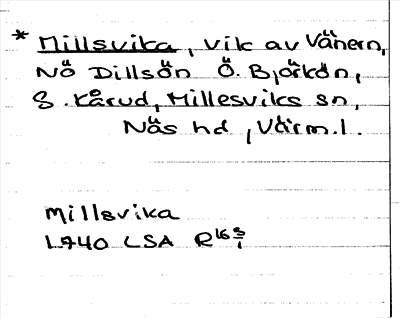 * Millsvika, vik av Vänern,
NÖ Dillsön Ö. Björkön,
S. Kårud, Millesviks sn,
Näs hd, Värm. l.
Millsvika
1740 LSA R16 5/1